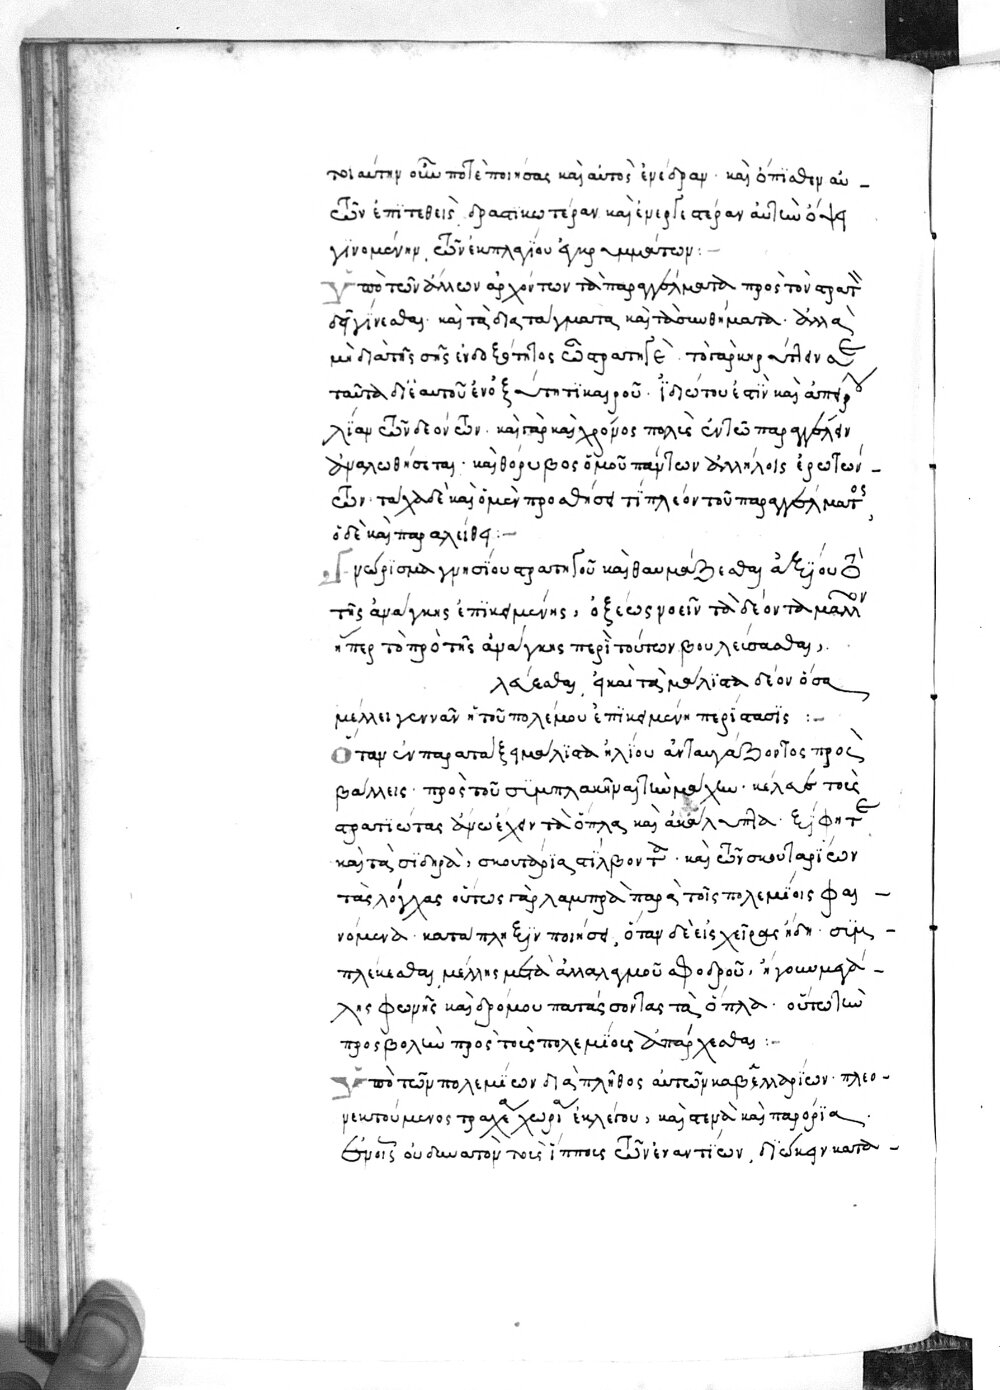 τοιαύτην οὖν ποτὲ ποιήσας καὶ αὐτὸς ἐνέδραν· καὶ ὄπισθεν αὐ
τῶν ἐπιτεθεὶς δραστικωτέραν καὶ ἐνεργεστέραν αὐτὴν ὄψει
γινομένην τῶν ἐκ πλαγίου ἐγκρυμμάτων:–
Ὑπὸ τῶν ἄλλων ἀρχόντων τὰ παραγγέλματα πρὸς τὸν στρατὸν
δεῖ γίνεσθαι· καὶ τὰ διατάγματα καὶ τὰ συνθήματα· ἀλλὰ
μὴ διὰ τῆς σῆς ἐνδοξότητος ὦ στρατηγέ· τὸ γὰρ κηρύττειν σε
ταῦτα δι' ἑαυτοῦ ἐν ὀξύτητι καιροῦ· ἰδιώτου ἐστὶν καὶ ἀπείρου
λίαν τῶν δεόντων· καὶ γὰρ καὶ χρόνος πολὺς ἐν τῷ παραγγέλλειν
ἀναλωθήσεται· καὶ θόρυβος ὁμοῦ πάντων ἀλλήλοις ἐρωτών
των· τάχα δὲ καὶ ὁ μὲν προσθήσει τι πλέον τοῦ παραγγέλματος,
ὁ δὲ καὶ παραλείψει:–
Γνώρισμα γνησίου στρατηγοῦ καὶ θαυμάζεσθαι ἀξίου τὸ
τῆς ἀνάγκης ἐπικειμένης, ὀξέως νοεῖν τὰ δέοντα μᾶλλον
ἤπερ τὸ πρὸ τῆς ἀνάγκης περὶ τούτων βουλεύσασθαι,
δέον ὅσα
μέλλει γεννᾶν ἡ τοῦ πολέμου ἐπικειμένη περίστασις:–
Ὅταν ἐν παρατάξει μάλιστα ἡλίου ἀνταυγάζοντος προς
βάλλεις· πρὸς τοῦ συμπλακῆναι τὴν μάχην· κέλευε τοὺς
στρατιώτας ἄνω ἔχειν τὰ ὅπλα καὶ ἀκάλυπτα· ξίφη τε
καὶ τὰ σιδηρᾶ, σκουτάρια στίλβοντα· καὶ τῶν σκουταρίων
τὰς λόγχας οὕτως γὰρ λαμπρὰ παρὰ τοῖς πολεμίοις φαι
νόμενα· κατάπληξιν ποιήσει, ὅταν δὲ εἰς χεῖρας ἤδη· συμ
πλέκεσθαι μέλλης μετὰ ἀλλαλαγμοῦ σφοδροῦ, ἤγουν μεγά
λης φωνῆς καὶ δρόμου πατάσσοντας τὰ ὅπλα· οὕτω τὴν
προσβολὴν πρὸς τοὺς πολεμίους ἀπάρχεσθαι:–
Ὑπὸ τῶν πολεμίων διὰ πλῆθος αὐτῶν καβαλλαρίων· πλεο
νεκτούμενος τραχέα χωρία ἐκλέγου, καὶ στενὰ καὶ παρόρια
ἐν οἷς οὐ δυνατὸν τοῖς ἵπποις τῶν ἐναντίων, διώκειν κατὰ